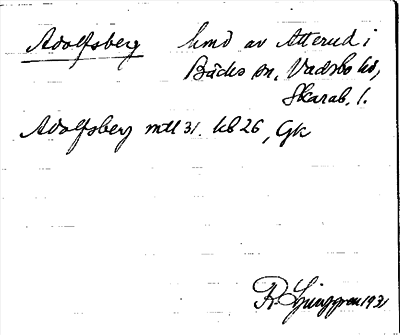 Adolfsberg hmd av Atterud i
Bäcks sn, Vadsbo hd,
Skarab. l.
Adolfsberg mtl 31. kb 26, GK
R. Ljunggren 1931